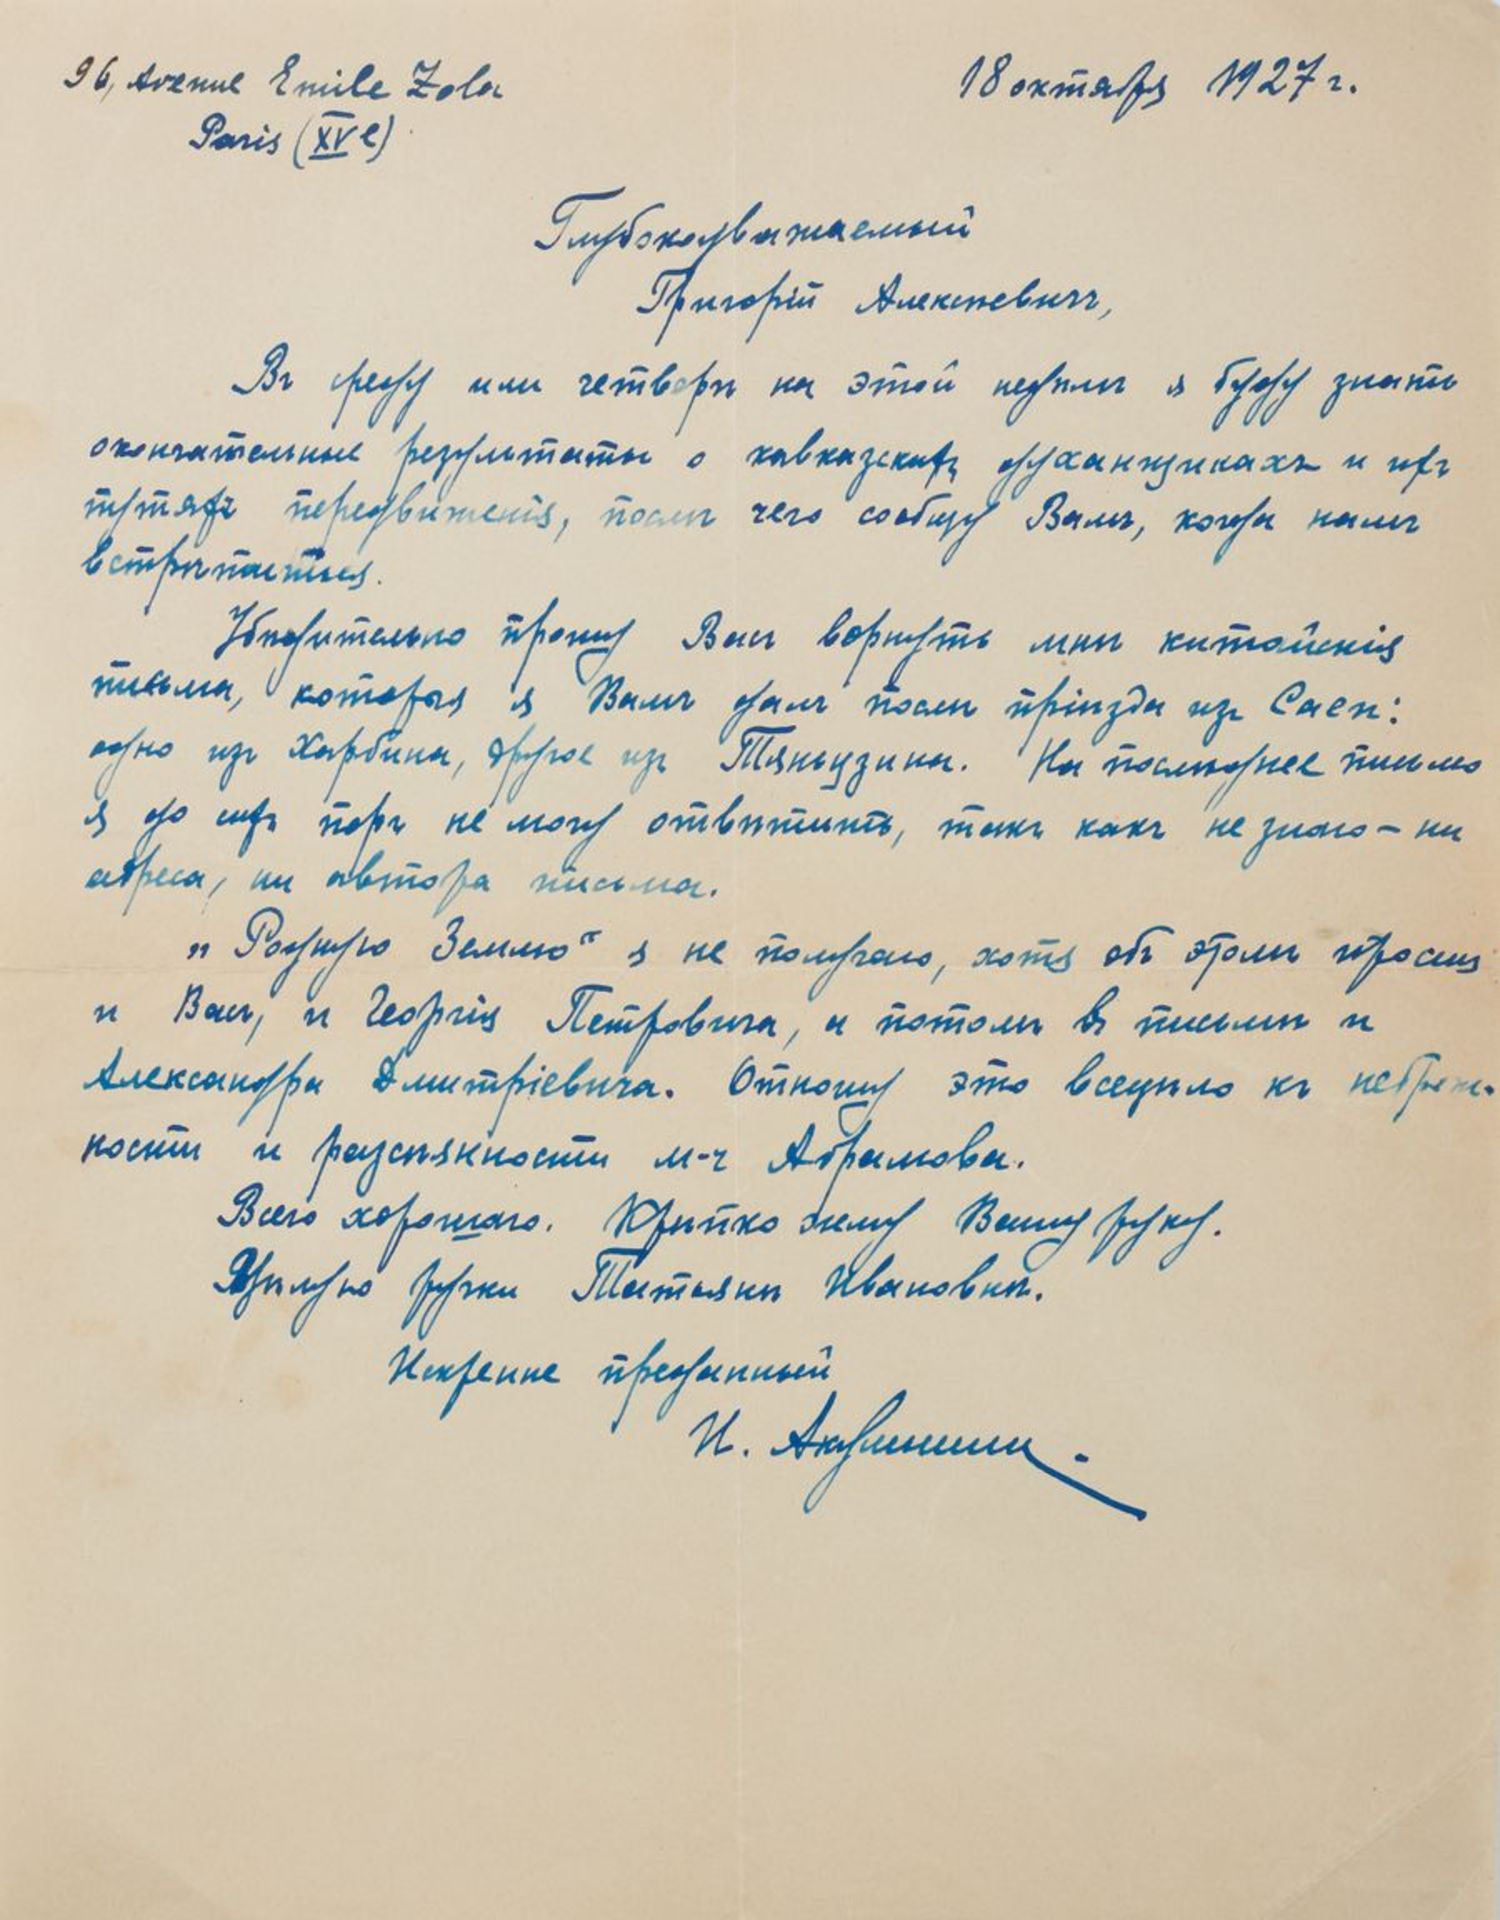 96, Avenue Emile Zola
Paris (XVe)
18 октября 1927 г.
Глубокоуважаемый
Григорій Алексѣевичъ,
Въ среду или четвергъ на этой недѣлѣ я буду знать
окончательные результаты о кавказскихъ духанщикахъ и ихъ
путяхъ передвиженія, послѣ чего сообщу Вамъ, когда намъ
встрѣтиться.
Убѣдительно прошу Васъ вернуть мнѣ китайскія
письма, которыя я Вамъ далъ послѣ пріѣзда изъ Саен:
одно изъ Харбина, другое изъ Тяньцзина. На послѣднее письмо
я до сихъ поръ не могу отвѣтить, такъ какъ не знаю – ни
адреса, ни автора письма.
„Родную Землю“ я не получаю, хотя объ этомъ просилъ
и Васъ, и Георгія Петровича, а потомъ въ письмѣ и
Александра Дмитріевича. Отношу это всецѣло къ небреж-
ности и разсѣянности м-ч Абрамова.
Всего хорошаго. Крѣпко жму Вашу руку.
Цѣлую ручки Татьянѣ Ивановнѣ.
Искренне преданный
И. Акулининъ.